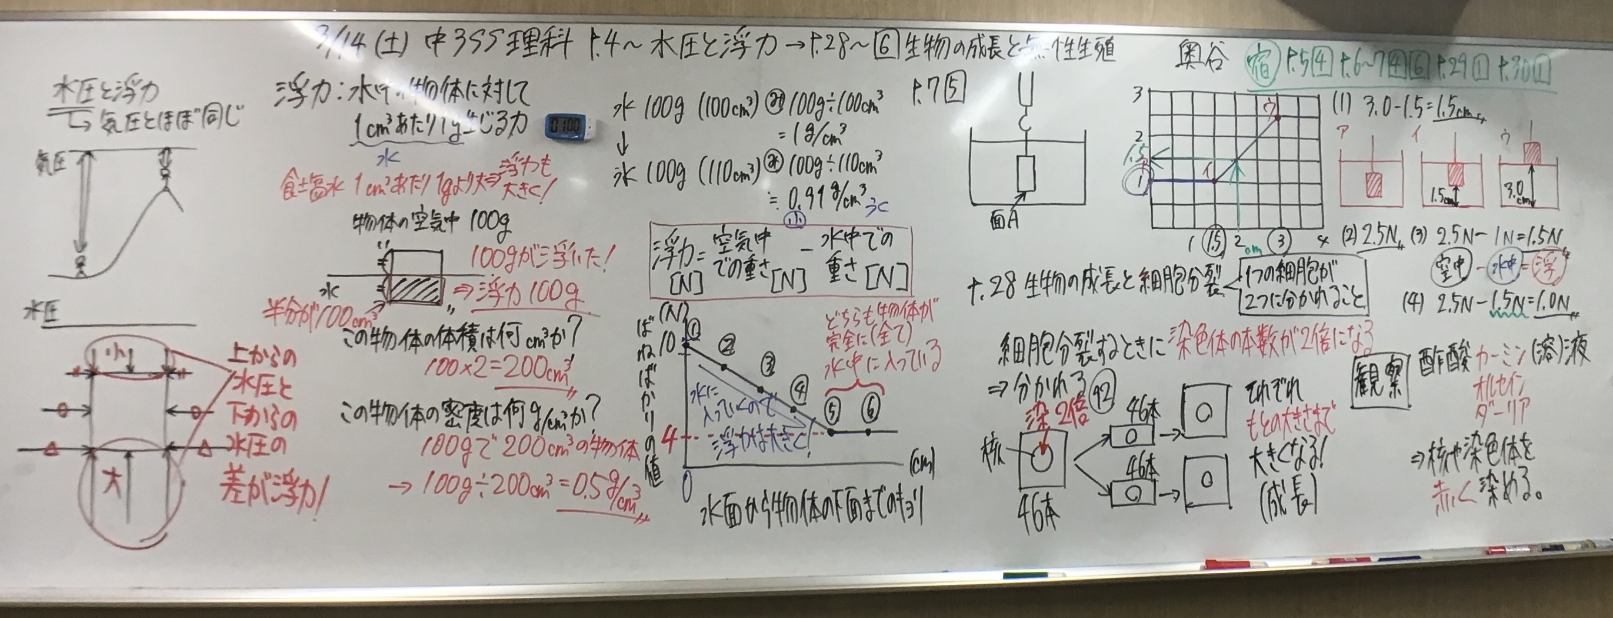 3/14(土) 中3SS理科 P.4〜 水圧と浮力→P.28〜6 生物の成長と無性生殖
奥谷
宿 P.5 4 P.6〜7 4 6 P.29 1 P.30 1
水圧と浮力
→気圧とほぼ同じ
気圧
水圧
小
大
上からの
水圧と
下からの
水圧の
差が浮力!
浮力:水中の物体に対して
1cm³あたり1g生じる力
水
食塩水 1cm³あたり1gより大⇒浮力も
大きく!
物体の空気中100g
100gが浮いた!
水
⇒浮力100g
半分が100cm³
この物体の体積は何cm³か?
100×2=200cm³
この物体の密度は何g/cm³か?
100gで200cm³の物体
→100g÷200cm³=0.5g/cm³
0100
水100g(100cm³) 100g÷100cm³
=1g/cm³
↓
氷100g(110cm³) 100g÷110cm³
≒0.91g/cm³
小
浮力=空気中での重さ−水中での重さ
[N] [N] [N]
ばねばかりの値
(N)
10
4
0
① ② ③ ④ ⑤ ⑥
水に
入っていくので
浮力は大きく!
どちらも物体が
完全に(全て)
水中に入っている
(cm)
水面から物体の下面までのキョリ
P.7 5
面A
3
2
1.5
1
イ
ウ
1 1.5 2 3 4
cm
(1) 3.0−1.5=1.5cm
ア イ ウ
1.5cm
3.0cm
(2) 2.5N (3) 2.5N−1N=1.5N
空中−水中=浮
(4) 2.5N−1.5N=1.0N
P.28 生物の成長と細胞分裂
1つの細胞が
2つに分かれること
細胞分裂するときに染色体の本数が2倍になる
⇒分かれる
染2倍
92
核
46本
46本
46本
それぞれ
もとの大きさまで
大きくなる!
(成長)
観察
酢酸カーミン(溶)液
オルセイン
ダーリア
⇒核や染色体を
赤く染める。